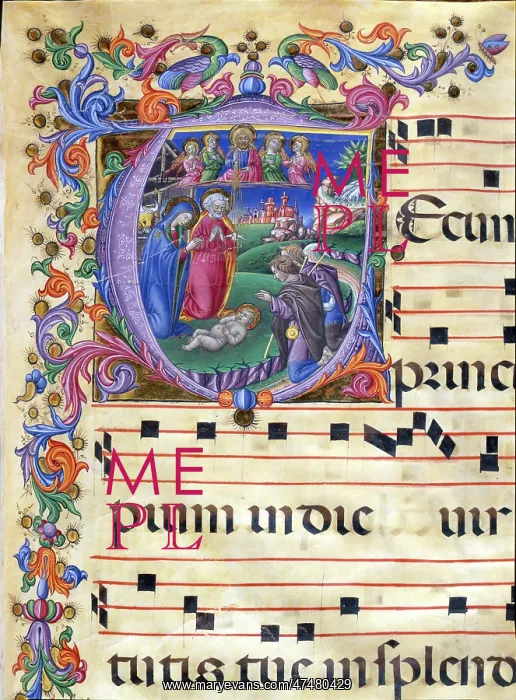 ME
PL
TEcum
princi
ME
PL
pium in die vir
tutis tue in splendo
www.maryevans.com/47480429